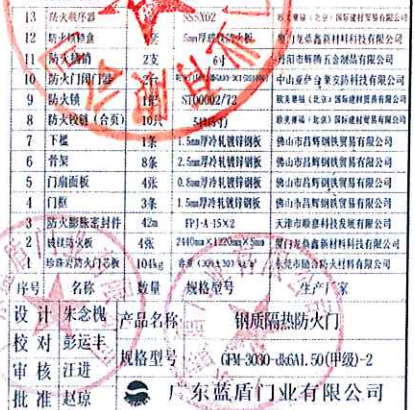 13 防火顺序器 SSX02 欧美赛福（北京）国际建材贸易有限公司
12 5mm厚 防火板 厦门龙鼎鑫新材料科技有限公司
11 防火插销 2支 6寸 丹阳市蝉腾五金制品有限公司
10 防火门闭门器 中山亚萨合莱安防科技有限公司
9 防火锁 1把 ST00002/72 欧美赛福（北京）国际建材贸易有限公司
8 防火铰链（合页） 10只 欧美赛福（北京）国际建材贸易有限公司
7 下槛 1条 1.5mm厚冷轧镀锌钢板 佛山市昌辉钢铁贸易有限公司
6 骨架 8条 2.5mm厚冷轧镀锌钢板 佛山市昌辉钢铁贸易有限公司
5 门扇面板 4张 0.8mm厚冷轧镀锌钢板 佛山市昌辉钢铁贸易有限公司
4 门框 3条 1.5mm厚冷轧镀锌钢板 佛山市昌辉钢铁贸易有限公司
3 防火膨胀密封件 42m FPJ-A-15×2 天津市顺赛科技发展有限公司
2 玻镁防火板 4张 2440mm×1220mm×5mm 厦门龙鼎鑫新材料科技有限公司
1 珍珠岩防火门芯板 104kg 防火材料有限公司
序号 名称 数量 规格型号 生产厂家
设计 朱念槐 产品名称 钢质隔热防火门
校对 彭运丰
规格型号 GFM-3030-dk6A1.50(甲级)-2
审核 汪进
批准 赵琼 广东蓝盾门业有限公司